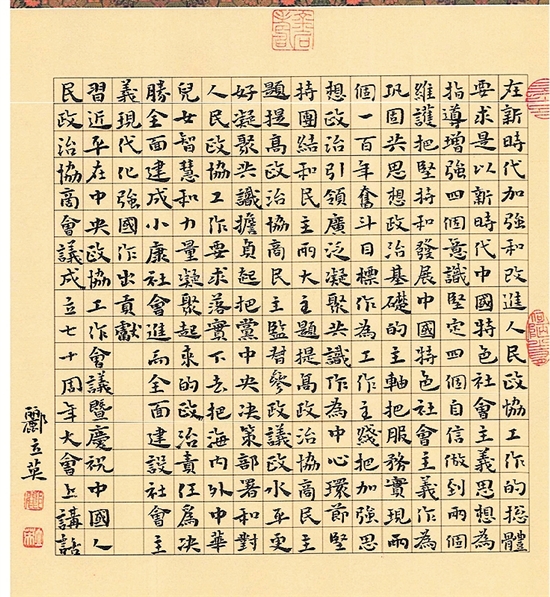 在新時代加強和改進人民政協工作的総體
要求是以新時代中國特色社會主義思想為
指導增強四個意識堅定四個自信做到兩個
維護把堅持和發展中國特色社會主義作為
巩固共思想政治基礎的主軸把服務實現兩
個一百年奮斗目標作為工作主綫把加強思
想政治引領廣泛凝聚共識作為中心環節堅
持團結和民主兩大主題提高政治協商民主
題提高政治協商民主監督參政議政水平更
好凝聚共識擔負起把黨中央决策部署和對
人民政協工作要求落實下去把海內外中華
兒女智慧和力量凝聚起來的政治責任為决
勝全面建成小康社會進而全面建設社會主
義現代化強國作出貢獻
習近平在中央政協工作會議暨慶祝中國人
民政治協商會議成立七十周年大會上講話
酈立英